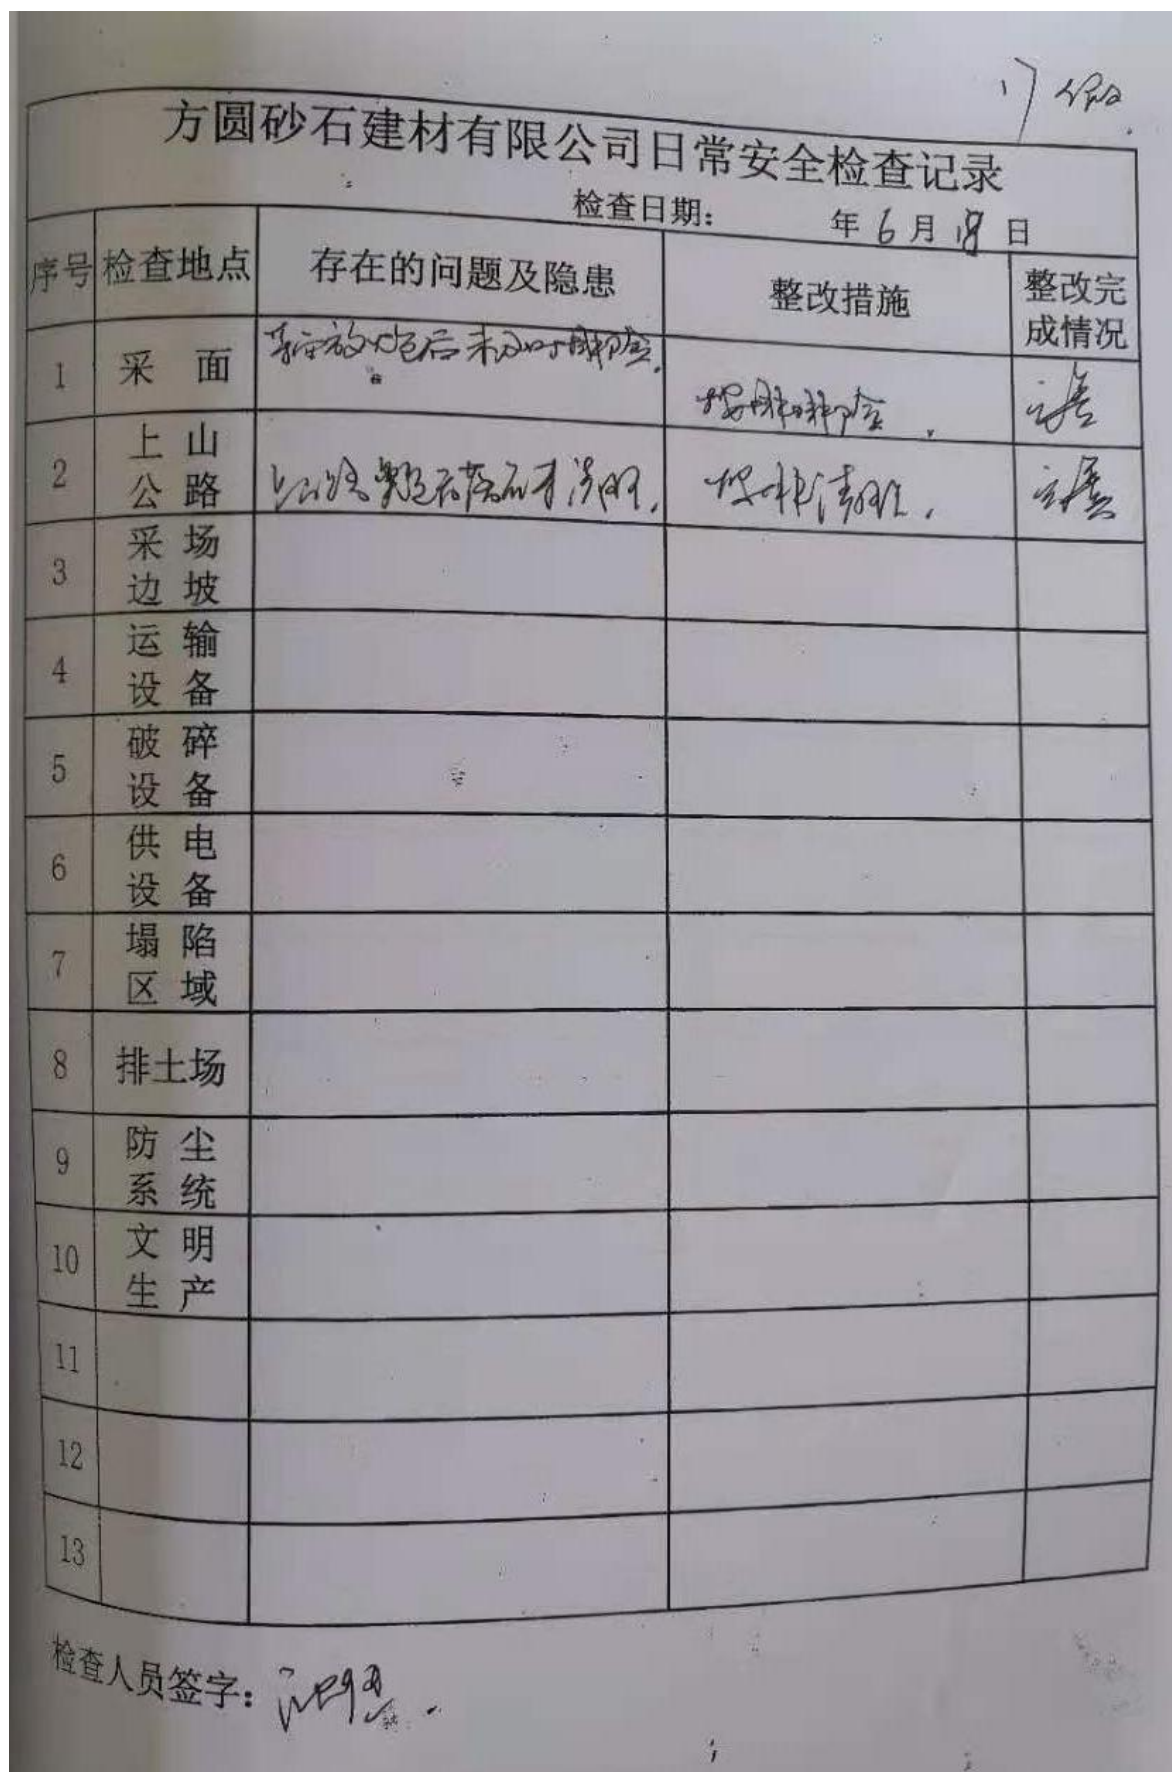 方圆砂石建材有限公司日常安全检查记录
检查日期: 年6月18日
序号 检查地点 存在的问题及隐患 整改措施 整改完成情况
1 采面 放炮后未及时排险.
2 上山公路 按排清理.
3 采场边坡
4 运输设备
5 破碎设备
6 供电设备
7 塌陷区域
8 排土场
9 防尘系统
10 文明生产
11
12
13
检查人员签字: